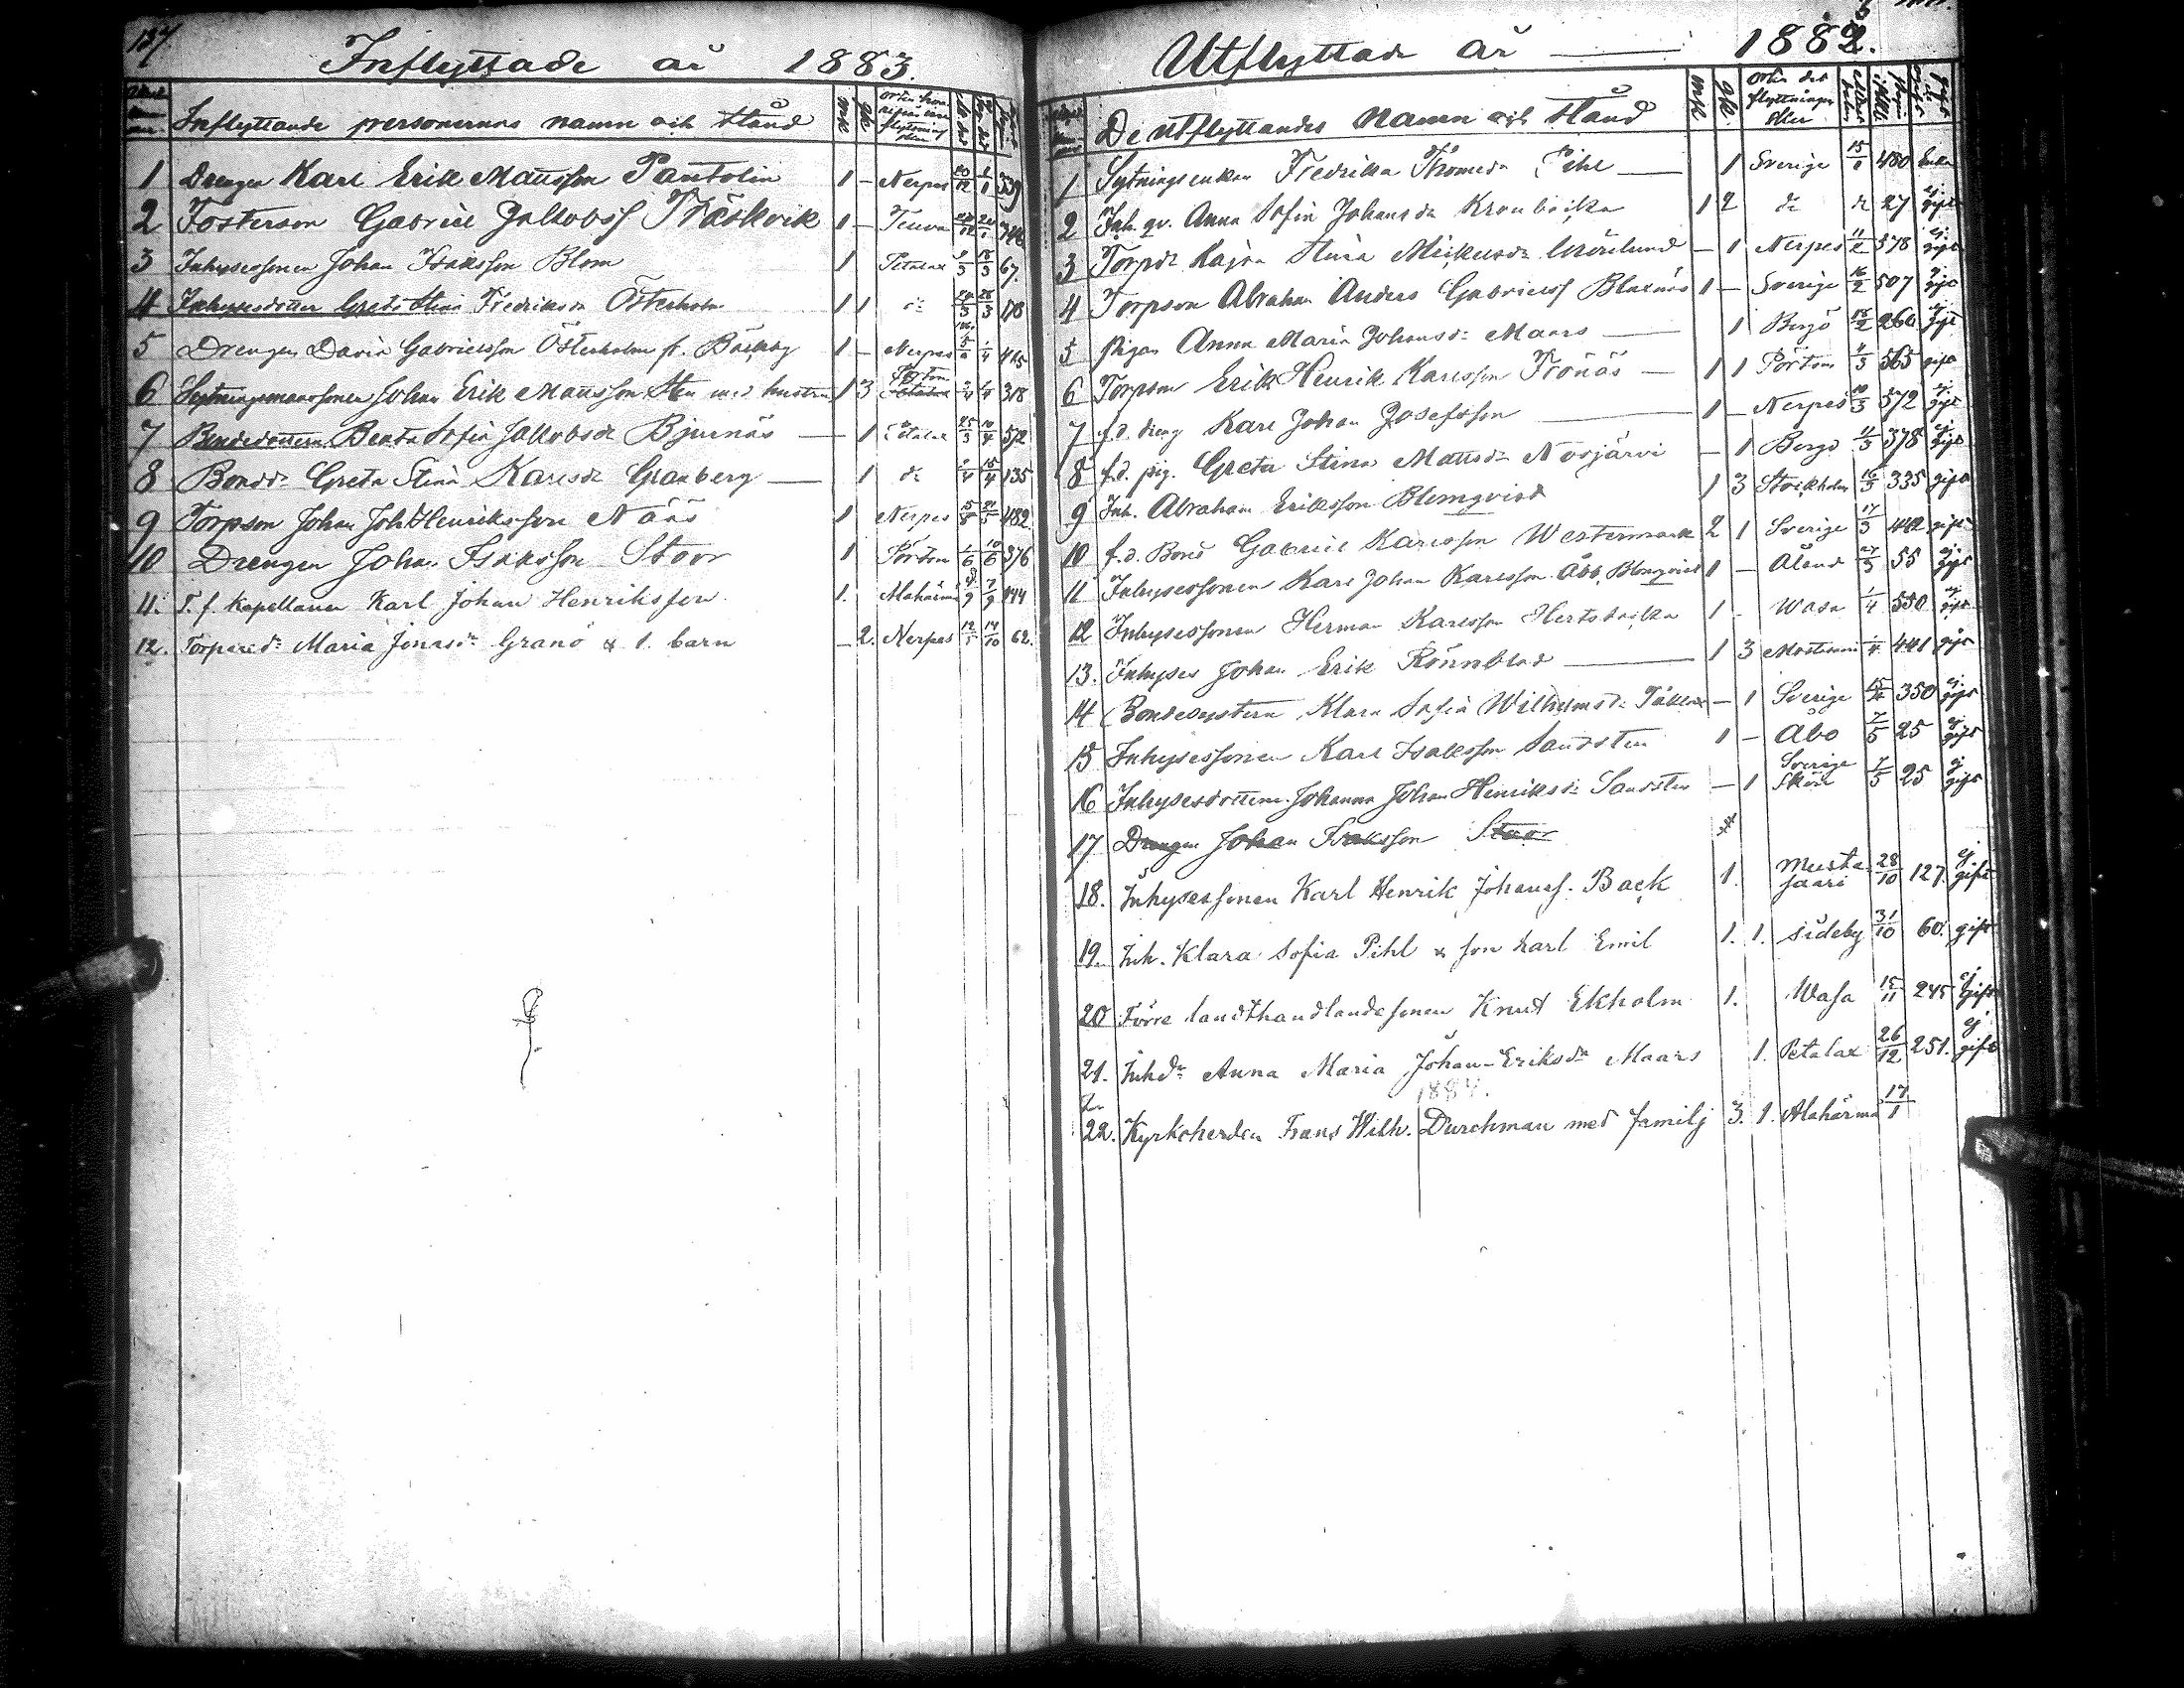 137.
Inflyttade år 1883.
Inflyttande personernas namn och stånd mk. qk.
1 Drengen Karl Erik Mattsson Pantolin 1 - Nerpes 20/12 539
2 Fosterson Gabriel Jakobss Träskvik 1 - Teuva
3 Inhysessonen Johan Isaksson Blom 1 Petalax 67.
4 Inhysesdotter Greta Stina Fredriksdr Österholm 1 1 dr 178
5 Drengen David Gabrielsson Österholm f. Backby 1 - Nerpes 415
6 Sytningsmanssonen Johan Erik Mattsson Sten med hustru 1 3 Pörtom 318
7 Bondedottern Beata Sofia Jakobsdr Bjurnäs — 1 Petalax 25/3 10/4 572
8 Bonddr Greta Stina Karlsdr Granberg — 1 dr 15/4 135
9 Torpson Johan Joh Henriksson Näss 1 Nerpes 482
10 Drengen Johan Isaksson Stoor 1 Pörtom 1/6 10/6 376
11. T. f. Kapellanen Karl Johan Henriksson 1. Alahärmä 7/9 144
12. Torparedr Maria Jonasdr Granö & 1. barn - 2. Nerpes 14/10 62.
Utflyttade år — 1882.
De utflyttandes namn och stånd mk. qk. Orten dit flyttningen sker
1 Sytningsenkan Fredrika Thomasdr Pihl — 1 Sverige 480 Enka
2 Inh. qv. Anna Sofia Johansdr Kronbricka 1 2 dr dr 27 ej gift
3 Torpdr Kajsa Stina Mickelsdr Mörelund - 1 Nerpes 11/2 378 ej gift
4 Torpson Abraham Anders Gabrielss Blaxnäs 1 - Sverige 16/2 507 ej gift
5 pigan Anna Maria Johansdr Maars — 1 Bergö 266 ej gift
6 Torpson Erik Henrik Karlsson Frönäs — 1 1 Pörtom 565 gift
7 f.d. dreng Karl Johan Josefsson — 1 - Nerpes 10/3 572 ej gift
8 f.d. pig. Greta Stina Mattsdr Norjärvi - 1 Bergö 11/3 378 ej gift
9 Inh. Abraham Eriksson Blomqvist 1 3 Stockholm 16/3 335 gift
10 f.d. Bond Gabriel Karlsson Westermark 2 1 Sverige 17/3 442 gift
11 Inhysessonen Karl Johan Karlsson Åbb, Blomqvist 1 - Åland 27/3 55 ej gift
12 Inhysessonen Herman Karlsson Hertsbacka 1 - Wasa 1/4 550 ej gift
13. Inhyses Johan Erik Rönnblad — 1 3 441 gift
14 Bondesystern Klara Sofia Wilhelmsdr - 1 Sverige 350 ej. gift
15 Inhysessonen Karl Isaksson Sandsten 1 - Åbo 7/5 25 ej gift
16 Inhysesdottern Johanna Johan Henriksdr Sandsten - 1 Sverige Skåne 7/5 25 ej gift
17 Drengen Johan Isaksson Stoor
18. Inhysessonen Karl Henrik Johanss. Back 1. Mustasaari 28/10 127. ej. gift
19. Inh. Klara Sofia Pihl & son Karl Emil 1. 1. Sideby 31/10 60. gift
20 Förre landthandlandesonen Knut Ekholm 1. Wasa 15/11 245 ej gift
21. Inhdr Anna Maria Johan-Eriksdr Maars 1. Petalax 26/12 251. ej gift
1884.
22. Kyrkoherden Frans Wilh. Durchman med familj 3. 1. Alahärmä 17/1